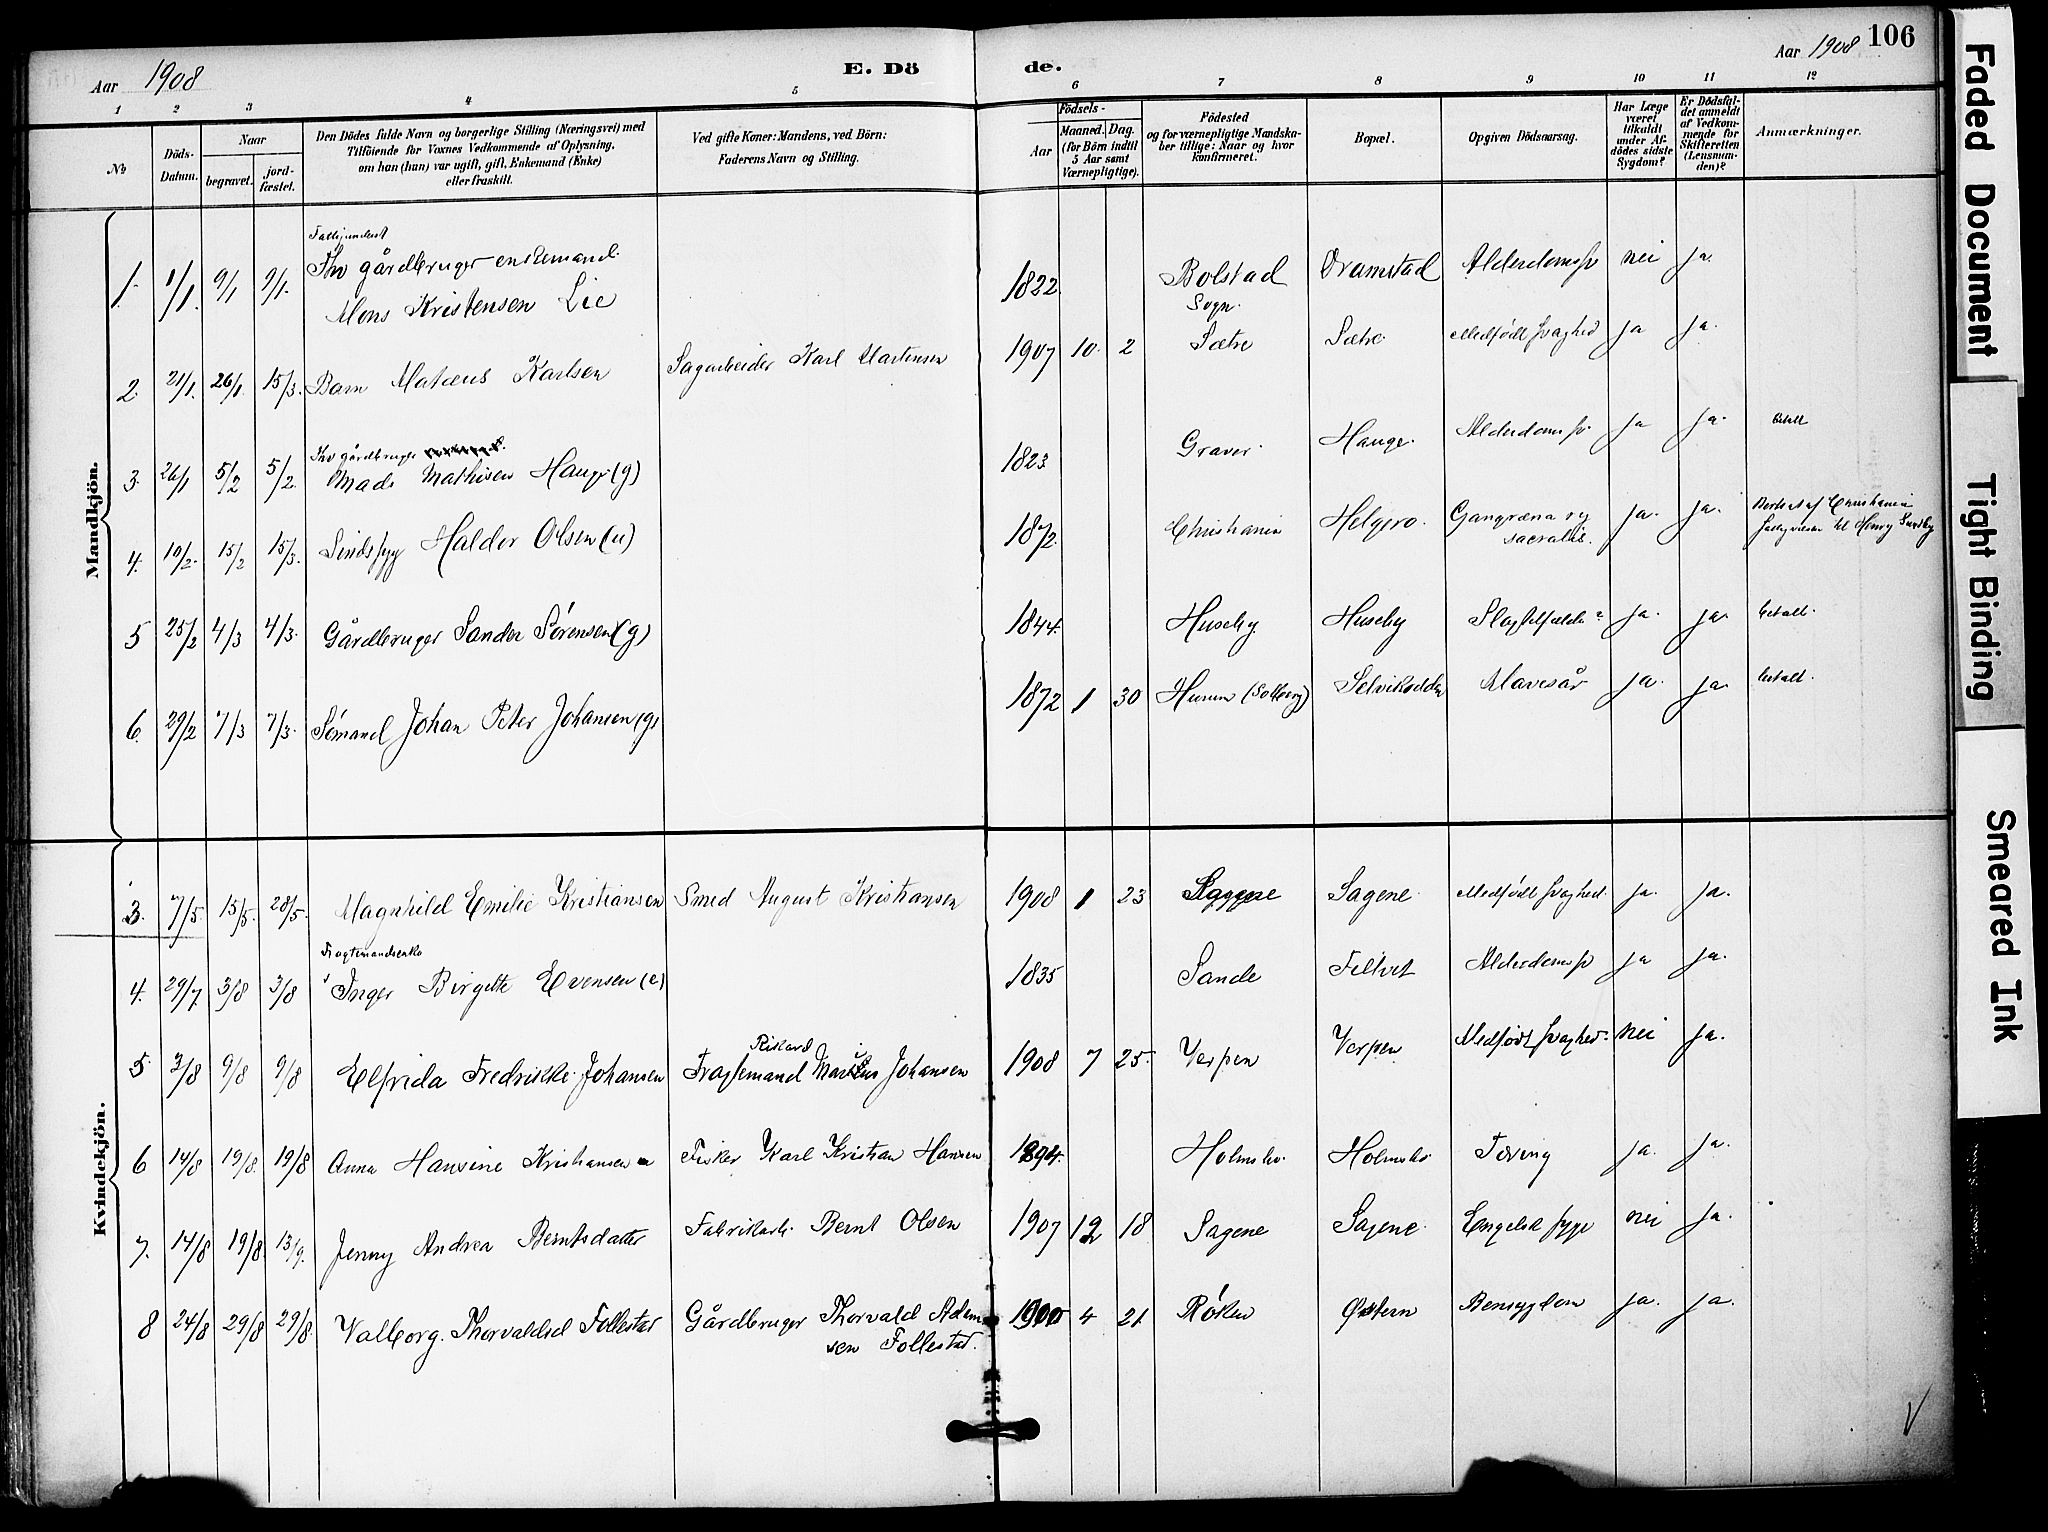 106
Aar 1908 E. Dö de. Aar 1908
1 2 3 4 5 6 7 8 9 10 11 12
No
Döds-
Datum.
Naar
begravet.
jord-
fæstet.
Den Dödes fulde Navn og borgerlige Stilling (Næringsvei) med
Tilföiende for Voxnes Vedkommende af Oplysning,
om han (hun) var ugift, gift, Enkemand (Enke)
eller fraskilt.
Ved gifte Koner: Mandens, ved Börn:
Faderens Navn og Stilling.
Födsels-
Aar
Maaned.
Dag.
(for Börn indtil
5 Aar samt
Værnepligtige).
Födested
og for værnepligtige Mandska-
ber tillige: Naar og hvor
konfirmeret.
Bopæl.
Opgiven Dödsaarsag.
Har Læge
været
tilkaldt
under Af-
dödes sidste
Sygdom?
Er Dödsfal-
det anmeldt
af Vedkom-
mende for
Skifteretten
(Lensman-
den)?
Anmærkninger.
Mandkjön.
1. 1/1. 9/1 9/1. gårdbruger enkemand 1822 Bolstad Dramstad Alderdomssv nei ja.
Mons Kristensen Lie Sogn.
2. 21/1. 26/1. 15/3. Barn Mataus Karlsen Sagarbeider Karl Martensen 1907 10. 2 Sætre Sætre Medfødt svaghed ja ja.
gårdbruger
3. 26/1 5/2 5/2. Mads Mathisen Hauge (g) 1823 Graver Hauge. Alderdomssv. ja ja. betalt
4. 10/2. 15/2 15/3. Sindssyg Haldor Olsen (u) 1872. Christiania Helgero. Gangræna reg ja. ja. af Christiania
sacralis. til Henry Sundby
5 25/2 4/3 4/3. Gårdbruger Sander Sørensen (g) 1844. Huseby. Huseby ja. ja. betalt.
6. 29/2 7/3 7/3. Sømand Johan Peter Johansen (g) 1872 1 30 Hurum (Solberg) Selvikodden Mavesår ja. ja. betalt.
Kvindekjön.
3. 7/5. 15/5. 28/5. Magnhild Emilie Kristiansen Smed August Kristiansen 1908 1 23 Saggene Sagene Medfødt svaghed. ja. ja.
Fragtemandsenke
4. 29/7 3/8 3/8 Inger Birgitte Evensen (e) 1835 Sande Filtvet Alderdomssv ja ja.
Rikard
5. 3/8 9/8 9/8 Elfrida Fredrikke Johansen Fragtemand Marius Johansen 1908 7 25. Verpen Verpen Medfødt svaghed. nei ja.
6 14/8 19/8. 19/8 Anna Hansine Kristiansen Fisker Karl Kristian Hansen 1894. Holmsbo. Holmsbo Tæring ja. ja.
7. 14/8 19/8 13/9. Jenny Andrea Berntsdatter Fabrikarb. Bernt Olsen 1907 12 18 Sagene Sagene. Engelsk syge nei ja.
8 24/8 29/8 29/8. Valborg. Thorvaldsd Follestad Gårdbruger Thorvald Adam 1900 4 21 Røken Østern Bensygdom ja. ja.
sen Follestad.
V
Faded Document
Tight Binding
Smeared Ink